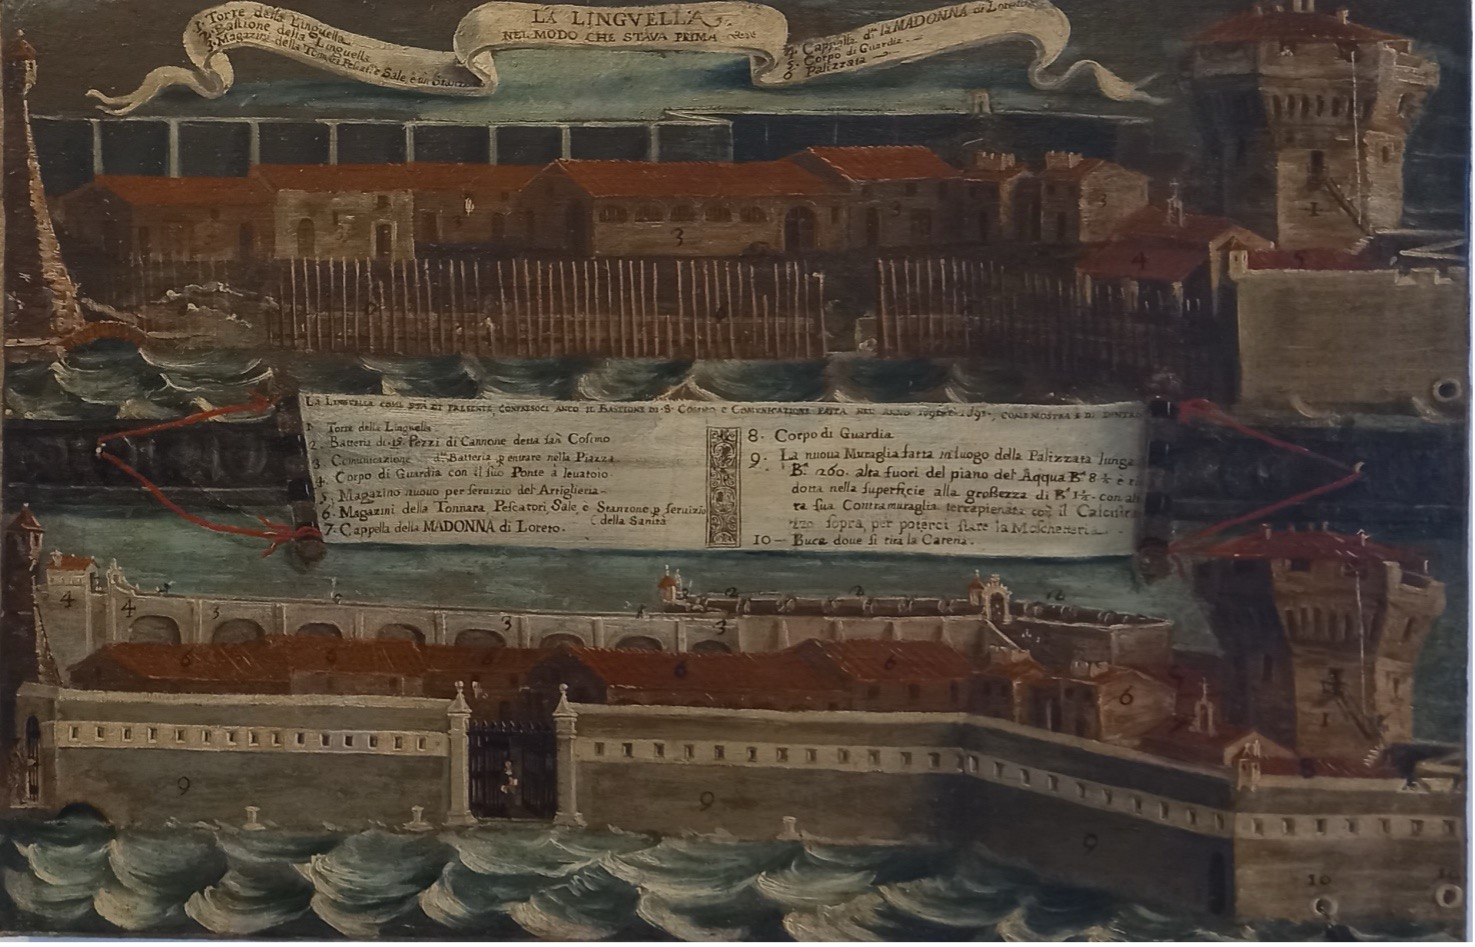 1. Torre della Linguella
2. Bastione della Linguella
3. Magazini della Tonnara Pescat:e Sale, e un Stanzone
LA LINGVELLA
NEL MODO CHE STAVA PRIMA
4. Cappella d:ᵃ la MADONNA di Loreto
5. Corpo di Guardia.
6 Palizzata
LA LINGVELLA COME STÀ DI PRESENTE, CONFARSOCI ANCO IL BASTIONE DI S. COSIMO E COMUNICAZIONE FATTA NEL ANNO COME MOSTRA E DI DENTRO
1. Torre della Linguella.
2. Batteria di 19 Pezzi di Cannone detta san Cosimo
3. Comunicazione d:ᵃ Batteria p entrare nella Piazza
4. Corpo di Guardia con il suo Ponte à leuatoio.
5. Magazino nuouo per seruizio del Artiglieria
6. Magazini della Tonnara Pescatori, Sale, e Stanzone p seruizio
della Sanità
7. Cappella della MADONNA di Loreto.
8. Corpo di Guardia
9. La nuoua Muraglia fatta in luogo della Palizzata lunga
Bᵃ 1260. alta fuori del piano del Acqua Bᵃ 8 ½ e ri
dotta nella superficie alla großezza di Bᵃ 1½ con al
ra sua Contramuraglia terrapienata con il
sopra, per poterci stare la Moschetteria
10 Buca doue si tira la Carena.
3
3
3
3
4
5
1
4
4
3
3
3
2
2
6
6
6
6
6
1
9
9
9
10